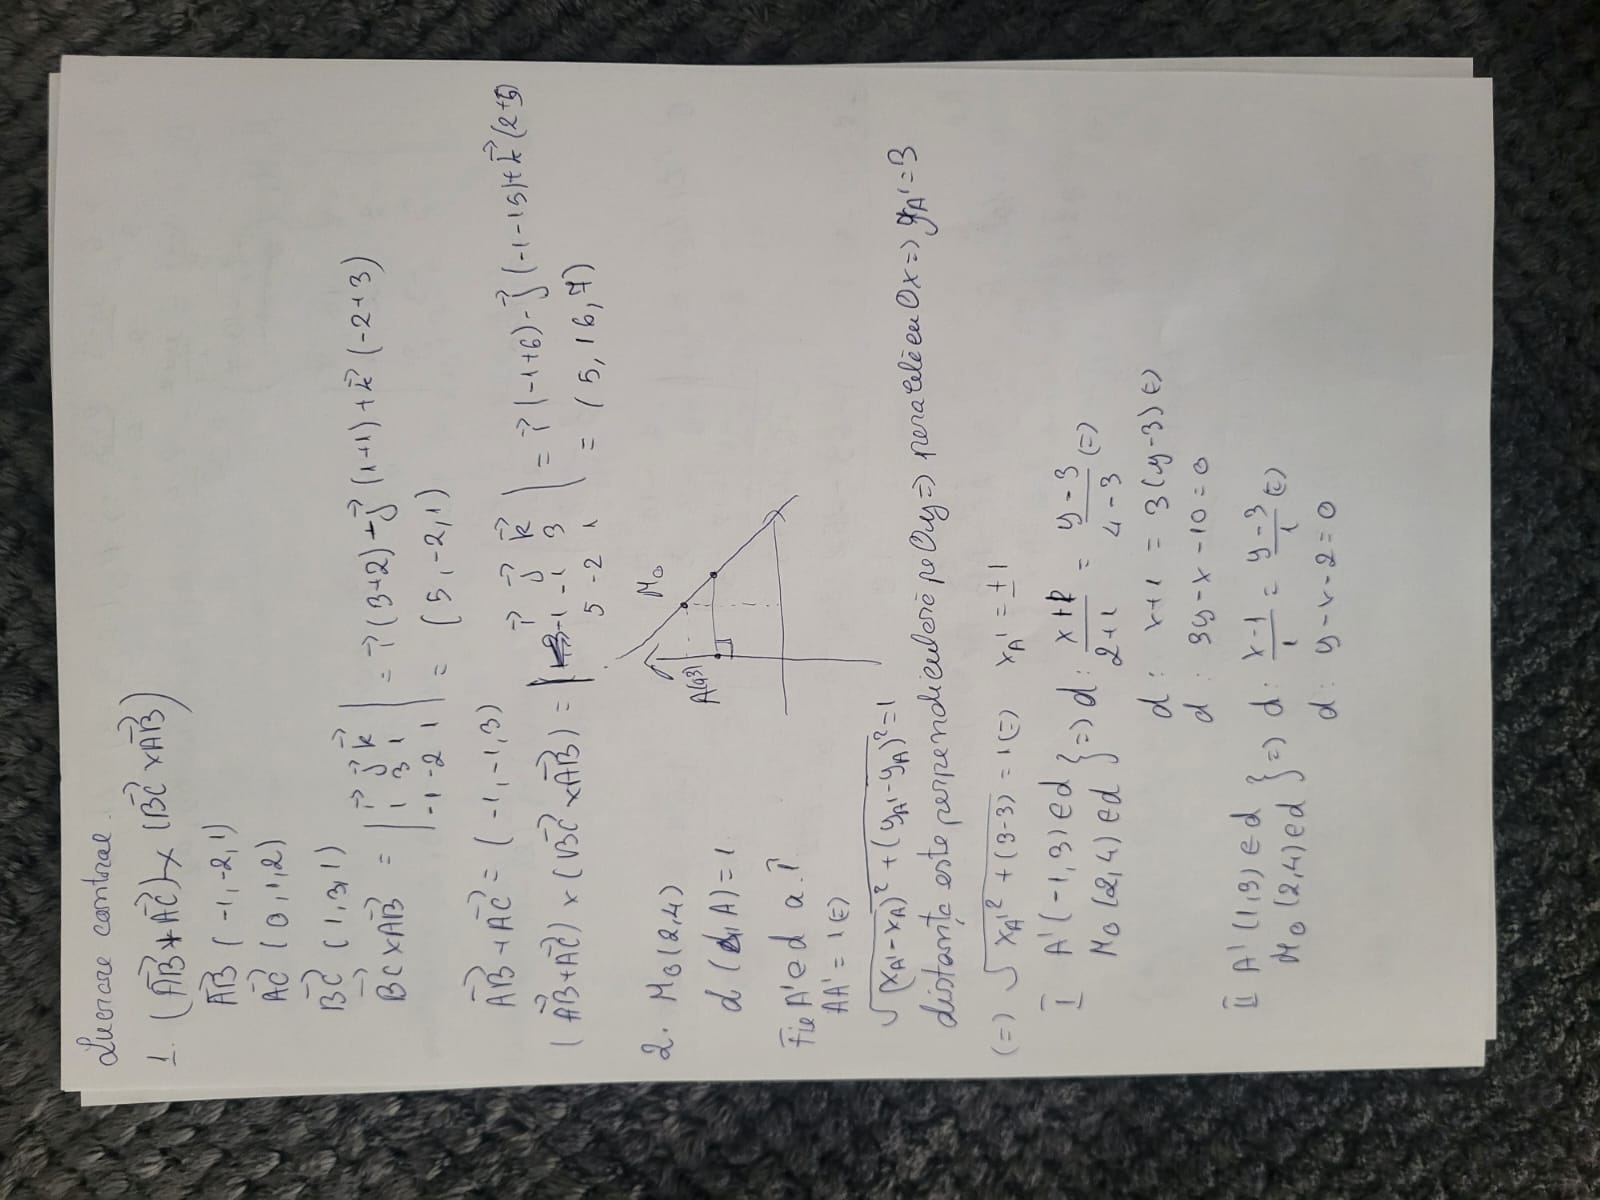 Lucrare control.
1. (AB⃗ + AC⃗) × (BC⃗ × AB⃗)
AB⃗ (-1, -2, 1)
AC⃗ (0, 1, 2)
BC⃗ (1, 3, 1)
BC⃗ × AB⃗ = | i⃗ j⃗ k⃗ | = i⃗ (3+2) - j⃗ (1+1) + k⃗ (-2+3)
1 3 1
-1 -2 1 | = (5, -2, 1)
AB⃗ + AC⃗ = (-1, -1, 3)
(AB⃗ + AC⃗) × (BC⃗ × AB⃗) = | i⃗ j⃗ k⃗ | = i⃗ (-1+6) - j⃗ (-1-15) + k⃗ (2+5)
-1 -1 3
5 -2 1 = (5, 16, 7)
2. M₀(2,4)
M₀
A(0,3)
d (d, A) = 1
Fie A' ∈ d a.î
AA' = 1 (=)
√(x_A' - x_A)² + (y_A' - y_A)² = 1
distanța este perpendiculară pe Oy => paralelă cu Ox => y_A' = 3
(=) √x_A'² + (3-3) = 1 (=) x_A' = ±1
I A'(-1,3) ∈ d
M₀(2,4) ∈ d } => d: (x+1)/(2+1) = (y-3)/(4-3) (=)
d: x+1 = 3(y-3) (=)
d: 3y-x-10=0
II A'(1,3) ∈ d
M₀(2,4) ∈ d } => d: (x-1)/1 = (y-3)/1 (=)
d: y-x-2=0